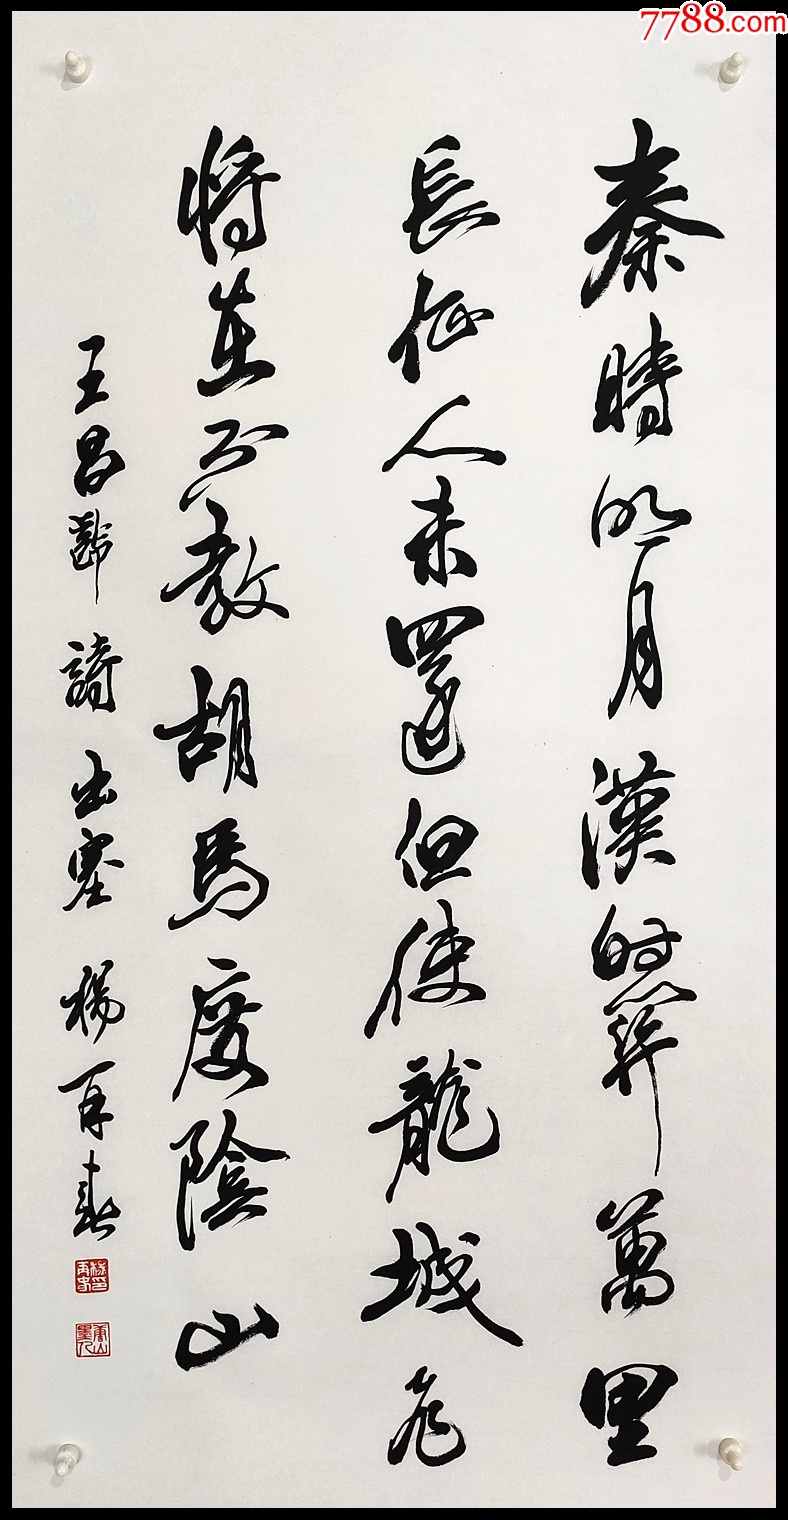 7788.com
秦時明月漢时關萬里
長征人未還但使龍城飛
將在不教胡馬度陰山
王昌齡詩出塞楊再春